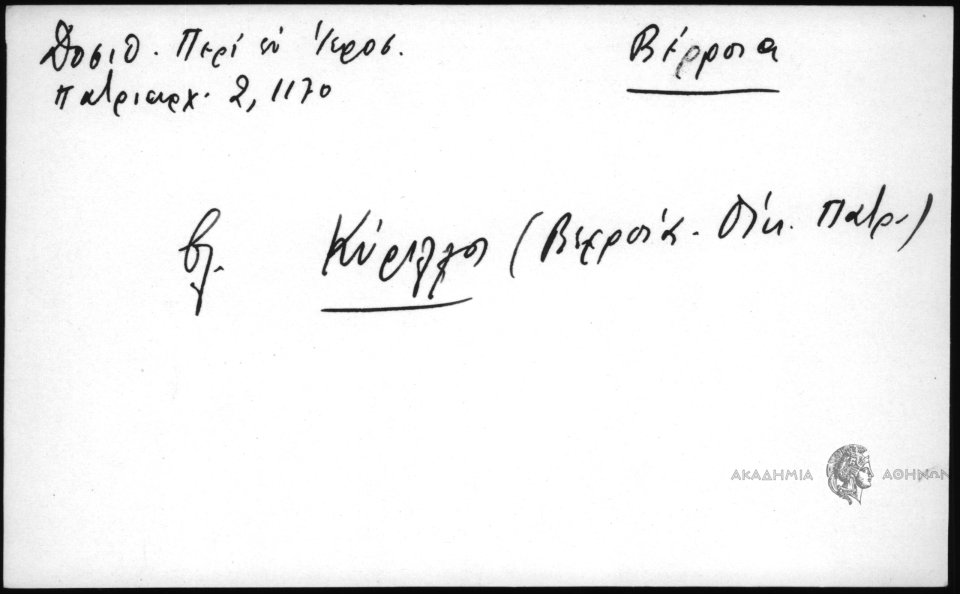 Δοσιθ. Περί ἐν Ἱεροσ.
Πατριαρχ. 2, 1170
Βέρροια
βλ. Κύριλλος (Βερροίας. Οἰκ. Πατρ.)
ΑΚΑΔΗΜΙΑ ΑΘΗΝΩΝ